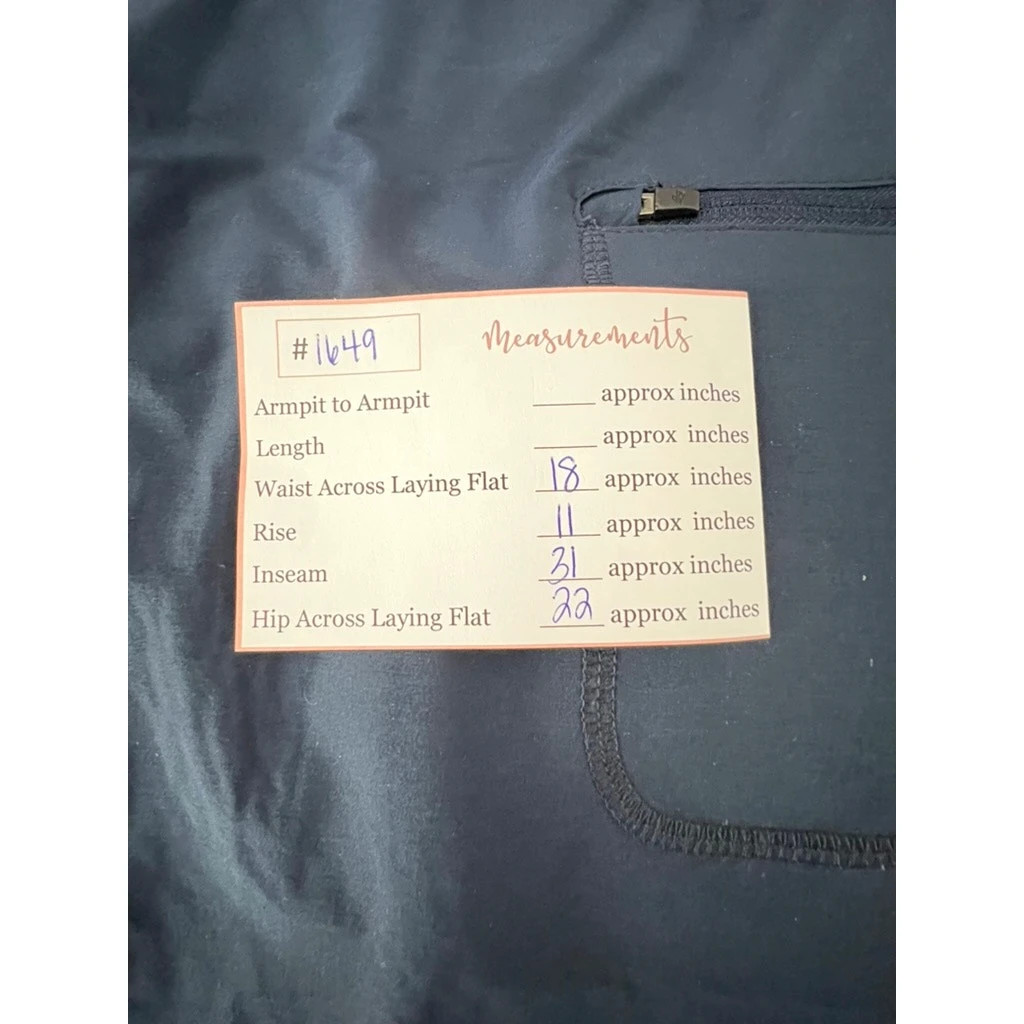 #1649
Measurements
Armpit to Armpit ____ approx inches
Length ____ approx inches
Waist Across Laying Flat 18 approx inches
Rise 11 approx inches
Inseam 31 approx inches
Hip Across Laying Flat 22 approx inches